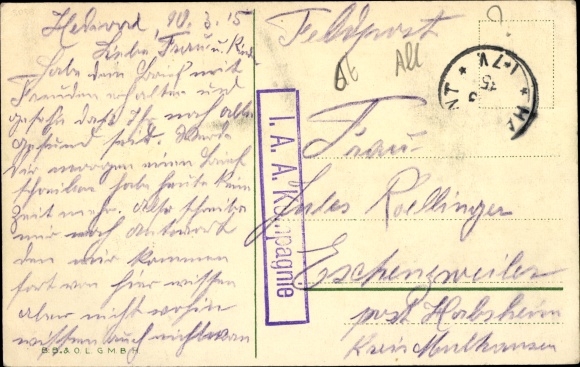 20. 3. 15
Liebe Frau u. Kind
habe dein Brief mit
Freuden erhalten und
gesehn daß Ihr noch alle
gesund seid. Werde
Dir morgen einen Brief
schreiben habe heute kein
Zeit mehr. Also schreibe
mir noch Antwort
den wir kommen
fort von hier wissen
aber nicht wohin
wissen auch nicht wan
B.B.& O.L.G.M.B.H.
Feldpost
I. A. A. Kompagnie
Frau
Jules Roellinger
Eschenzweiler
post Habsheim
Kreis Mulhausen